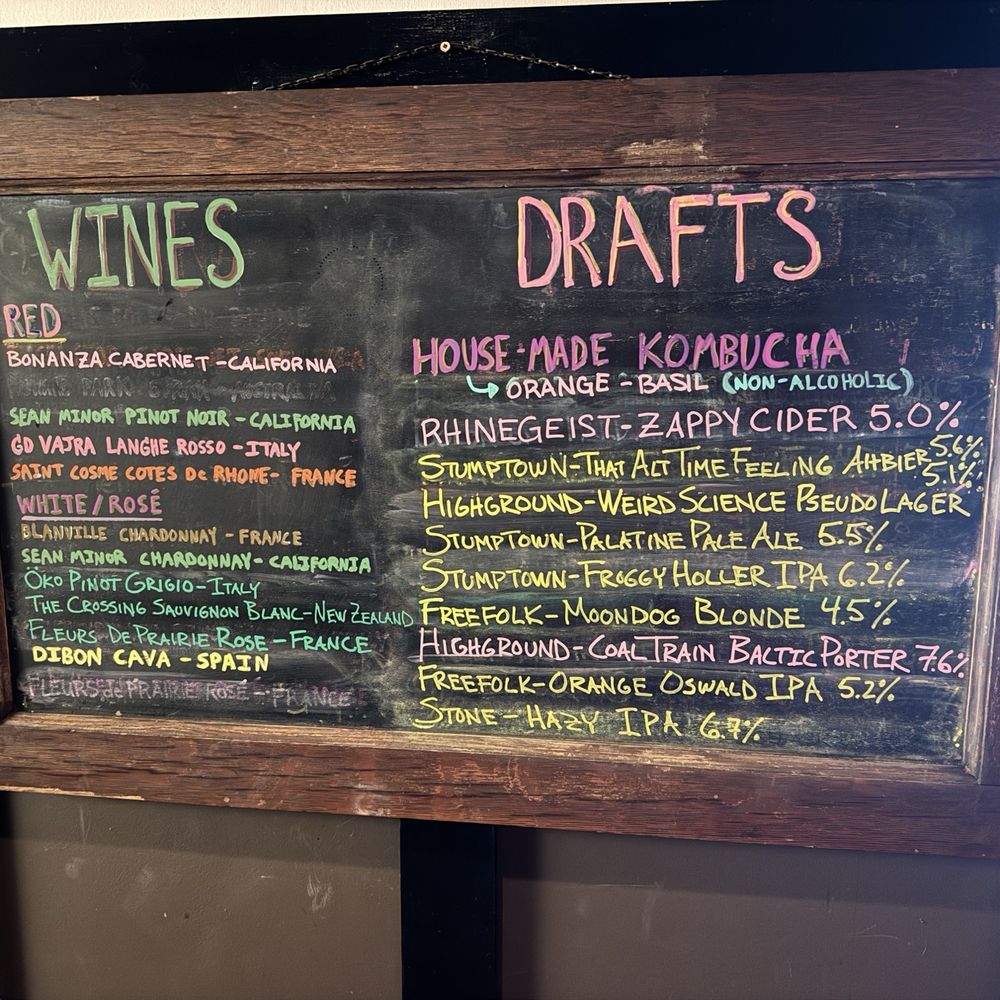 WINES
RED
BONANZA CABERNET - CALIFORNIA
SEAN MINOR PINOT NOIR - CALIFORNIA
GD VAJRA LANGHE ROSSO - ITALY
SAINT COSME COTES De RHONE - FRANCE
WHITE / ROSÉ
BLANVILLE CHARDONNAY - FRANCE
SEAN MINOR CHARDONNAY - CALIFORNIA
ÖKO PINOT GRIGIO - ITALY
THE CROSSING SAUVIGNON BLANC - NEW ZEALAND
FLEURS DE PRAIRIE ROSE - FRANCE
DIBON CAVA - SPAIN
FLEURS de PRAIRIE ROSÉ - FRANCE
DRAFTS
HOUSE-MADE KOMBUCHA
ORANGE - BASIL (NON-ALCOHOLIC)
RHINEGEIST - ZAPPY CIDER 5.0%
STUMPTOWN - THAT ALT TIME FEELING AHBIER 5.6%
HIGHGROUND - WEIRD SCIENCE PSEUDO LAGER 5.1%
STUMPTOWN - PALATINE PALE ALE 5.5%
STUMPTOWN - FROGGY HOLLER IPA 6.2%
FREEFOLK - MOONDOG BLONDE 4.5%
HIGHGROUND - COAL TRAIN BALTIC PORTER 7.6%
FREEFOLK - ORANGE OSWALD IPA 5.2%
STONE - HAZY IPA 6.7%